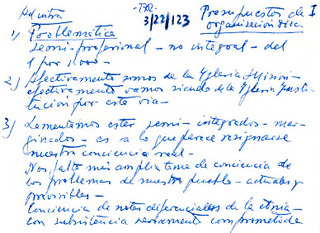 Adjuntra
-782-
3/22/123
Presupuestos de I
organización Dioc.
1) Problemática
semi-profesional - no integral - del
1 por 1.000 -
2) Afectivamente somos de la Iglesia Misión-
efectivamente vamos siendo de la Iglesia Insti-
tución por esta vía -
3) Lamentamos estar semi-integros - mar-
ginados - es a lo que parece resignarse
nuestra conciencia real -
Nos falta más amplia toma de conciencia de
los problemas de nuestro pueblo - actuales y
previsibles -
Conciencia de notas diferenciales de la etnia -
con subsistencia seriamente comprometida